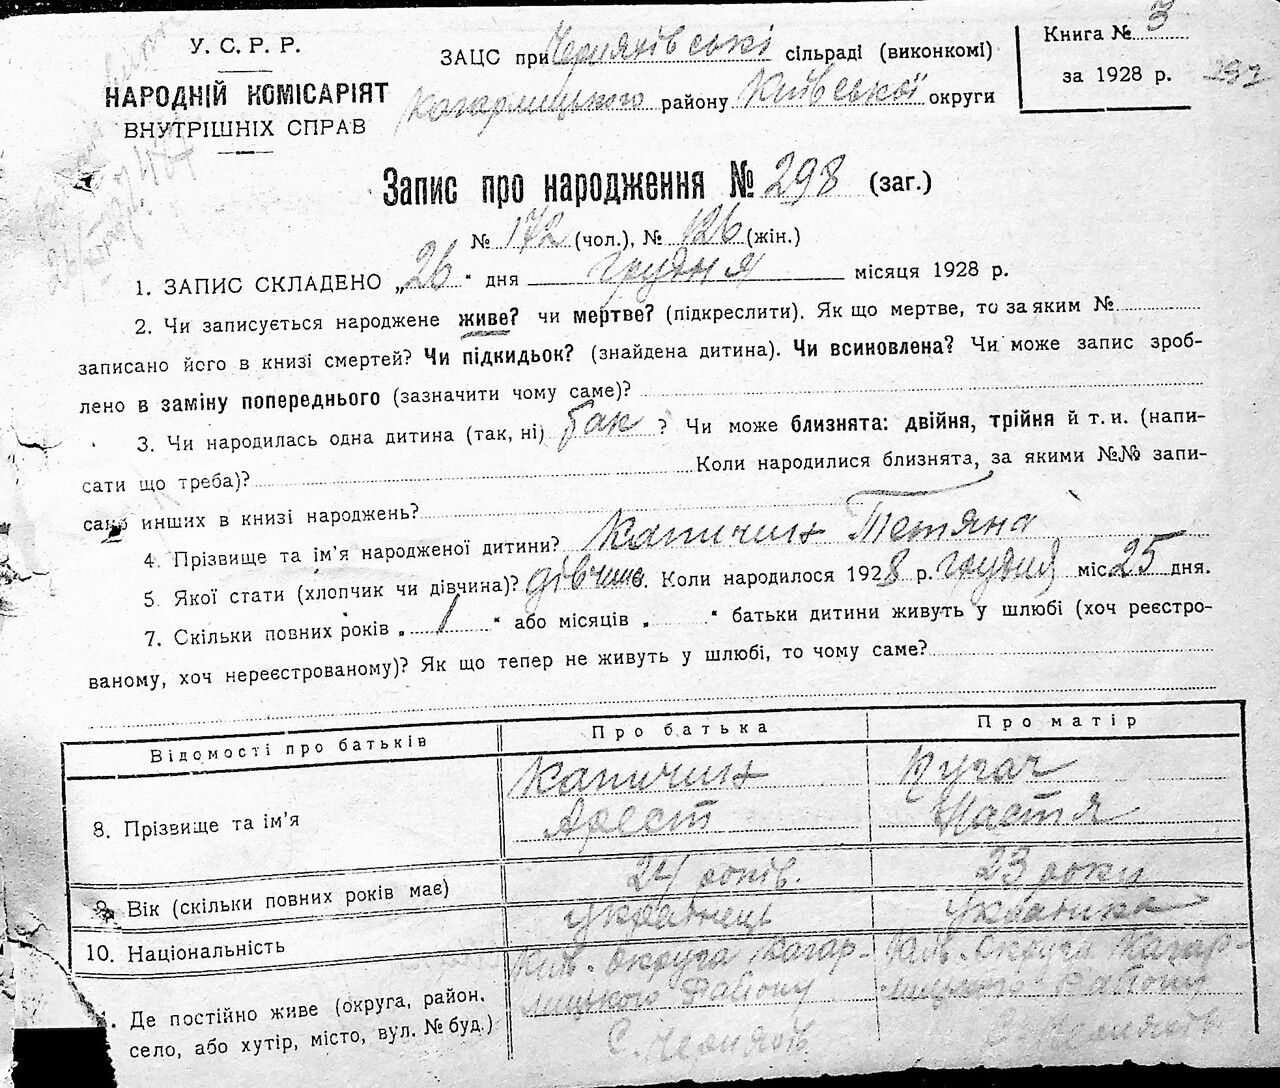 У. С. Р. Р.
НАРОДНІЙ КОМІСАРІЯТ
ВНУТРІШНІХ СПРАВ
ЗАЦС при Черняхівській сільраді (виконкомі)
Кагарлицького району Київської округи
Книга № 3
за 1928 р.
297
Запис про народження № 298 (заг.)
№ 172 (чол.), № 126 (жін.)
1. ЗАПИС СКЛАДЕНО „26“ дня грудня місяця 1928 р.
2. Чи записується народжене живе? чи мертве? (підкреслити). Як що мертве, то за яким №
записано його в книзі смертей? Чи підкидьок? (знайдена дитина). Чи всиновлена? Чи може запис зроб-
лено в заміну попереднього (зазначити чому саме)?
3. Чи народилась одна дитина (так, ні) так ? Чи може близнята: двійня, трійня й т. и. (напи-
сати що треба)? Коли народилися близнята, за якими №№ запи-
сано инших в книзі народжень?
4. Прізвище та ім'я народженої дитини? Капичин Тетяна
5. Якої стати (хлопчик чи дівчина)? дівчина. Коли народилося 1928 р. грудня міс 25 дня.
7. Скільки повних років „ 1 “ або місяців „ “ батьки дитини живуть у шлюбі (хоч реєстро-
ваному, хоч нереєстрованому)? Як що тепер не живуть у шлюбі, то чому саме?
Відомості про батьків Про батька Про матір
8. Прізвище та ім'я Капичин Арест Пугач Настя
9. Вік (скільки повних років має) 24 років. 23 роки
10. Національність Українець Українка
Де постійно живе (округа, район, село, або хутір, місто, вул. № буд.)
Київ. округа Кагар-
лицького Району
С. Черняхів
Київ. округа Кагар-
лицького Району
С. Черняхів